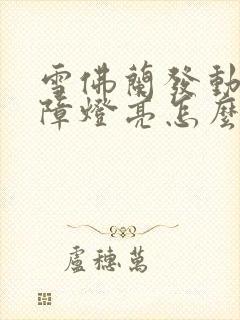 雪佛蘭發動
障燈亮怎麼
盧穗萬